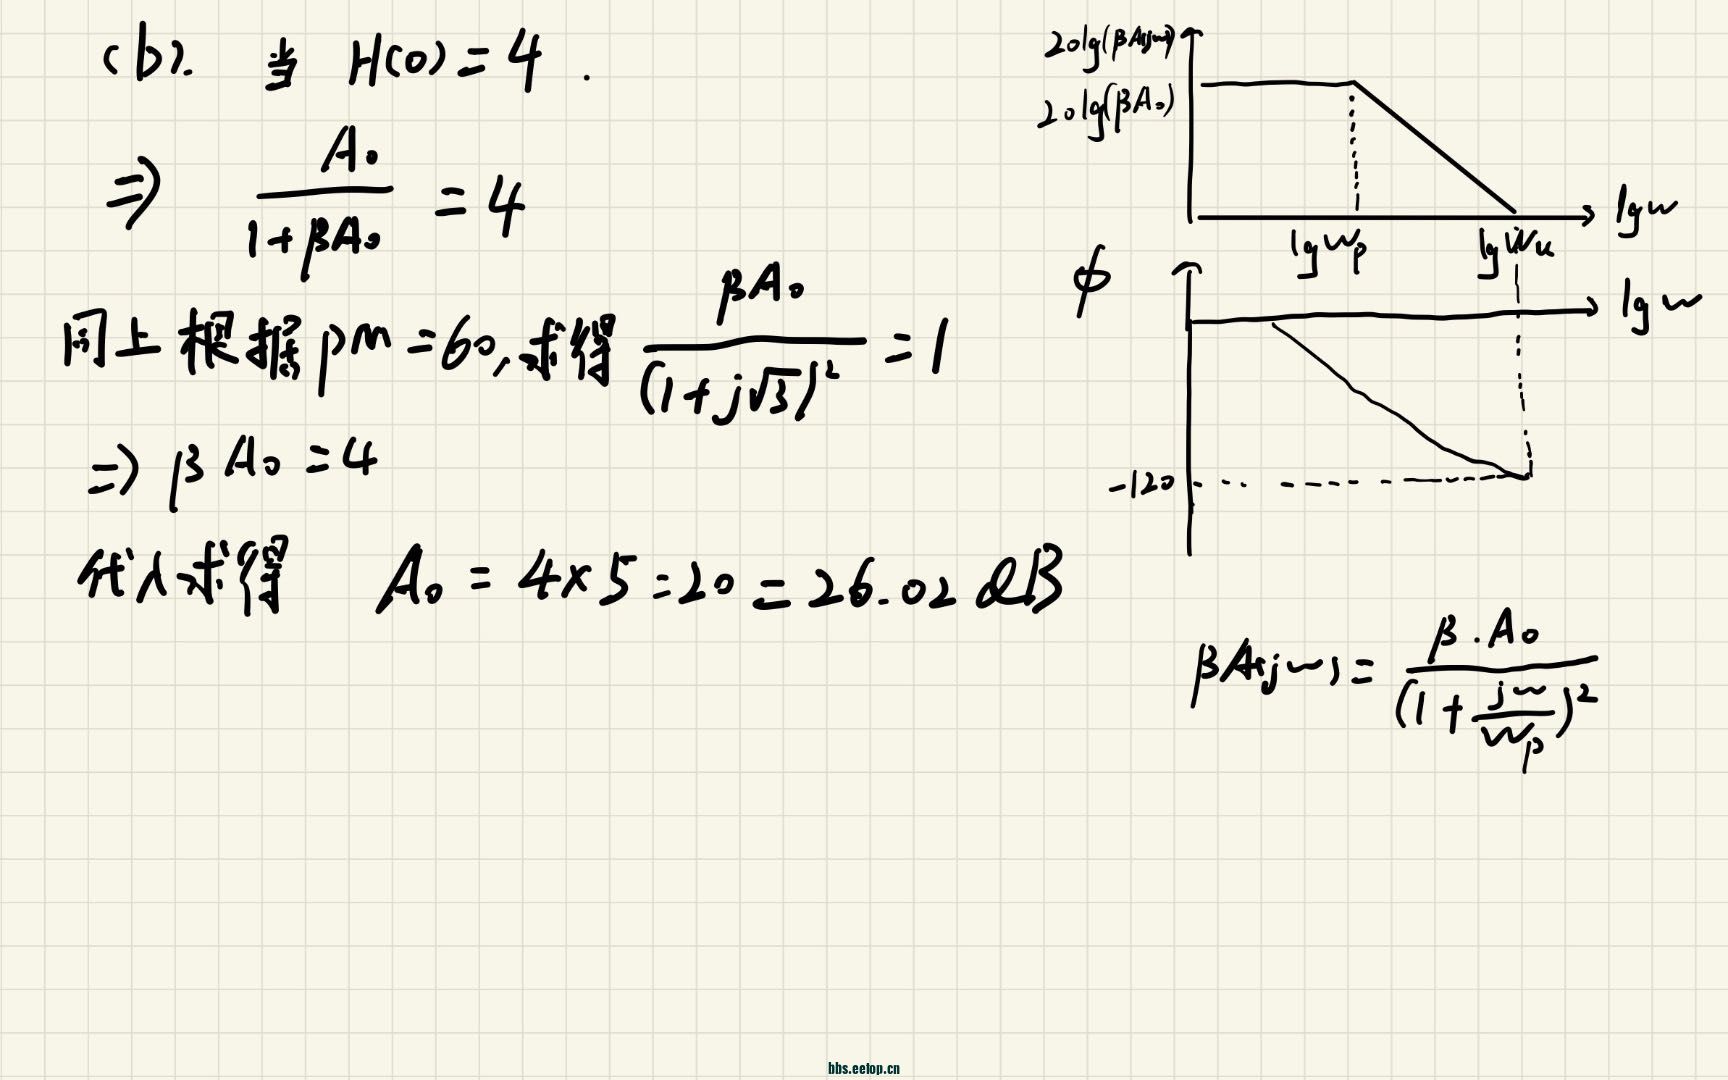 (b). 当 H(0) = 4 .
⇒ A₀ / (1 + βA₀) = 4
同上根据 PM = 60, 求得 βA₀ / (1 + j√3)² = 1
⇒ βA₀ = 4
代入求得 A₀ = 4×5 = 20 = 26.02 dB
20lg(βA(jw))
20lg(βA₀)
lgw
lgWp
lgWu
ϕ
lgw
-120
βA(jw) = β.A₀ / (1 + jw/Wp)²
bbs.eetop.cn